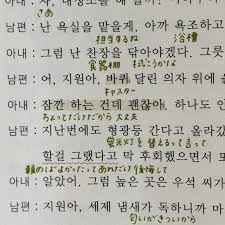 아내 : 자, 대청소를 해 볼까?
さあ
남편 : 난 욕실을 맡을게, 아까 욕조하고
担当するね 浴槽
아내 : 그럼 난 찬장을 닦아야겠다. 그릇
食器棚 拭こうかな
남편 : 어, 지원아, 바퀴 달린 의자 위에
キャスター
아내 : 잠깐 하는 건데 괜찮아. 하나도 안
ちょっとだけだから 大丈夫
남편 : 지난번에도 형광등 간다고 올라갔
蛍光灯を替えるって言って
할걸 그랬다고 막 후회했으면서
頼めばよかったってあれだけ後悔して
아내 : 알았어. 그럼 높은 곳은 우석 씨가
남편 : 지원아, 세제 냄새가 독하니까 마
匂いがきついから